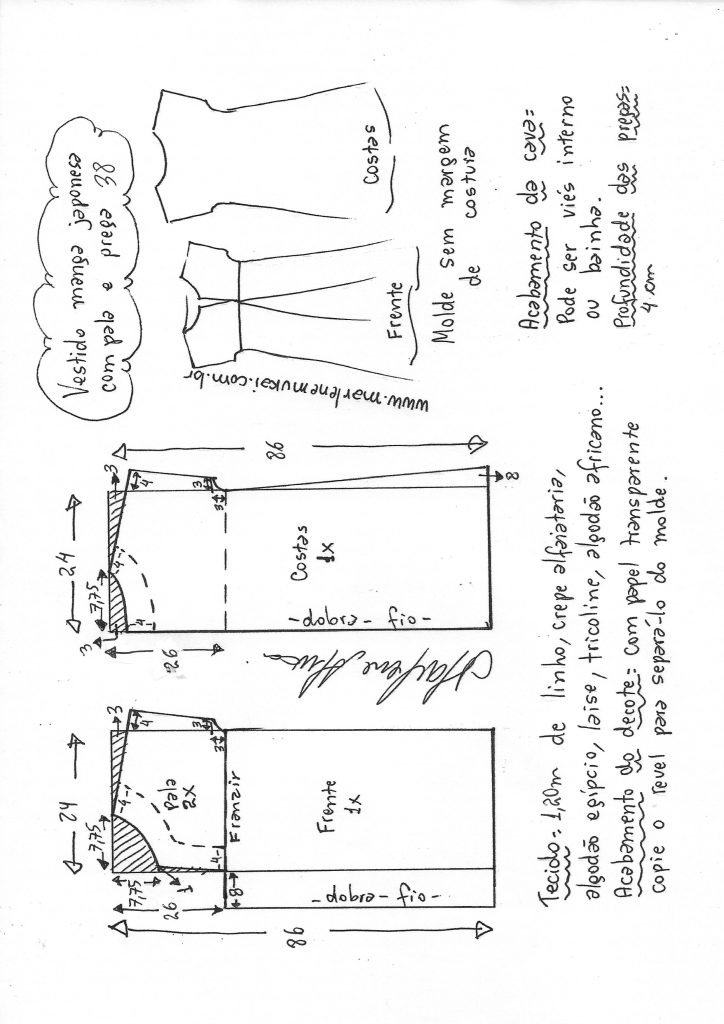 Vestido manga japonesa
com pala e prega 38
Costas
Frente
www.marlenemukai.com.br
Molde sem margem
de costura
Acabamento da cava=
Pode ser viés interno
ou bainha.
Profundidade das pregas=
4 cm
24
3
7,75
4
4
4
3
3
3
26
86
8
Costas
1x
-dobra-fio-
24
3
7,75
7,75
4
4
3
3
1
26
4
8
86
Pala
2x
Franzir
Frente
1x
-dobra-fio-
Tecido= 1,20m de linho, crepe alfaiataria,
algodão egípcio, laise, tricoline, algodão africano...
Acabamento do decote= Com papel transparente
copie o revel para separá-lo do molde.